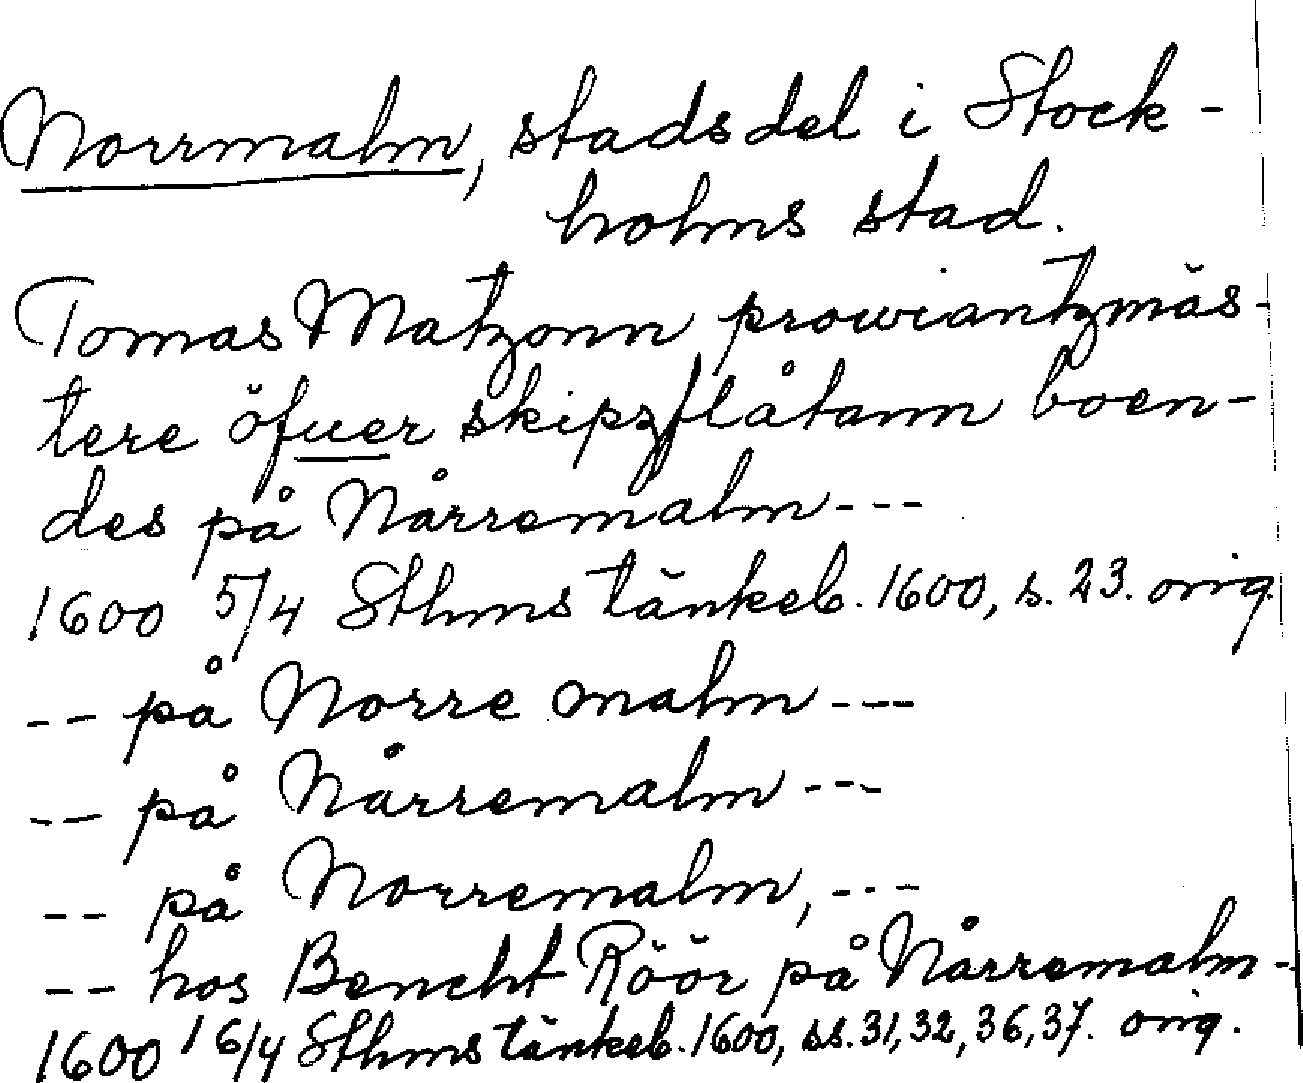 Norrmalm, stadsdel i Stock-
holms stad.
Tomas Matzonn prowiantzmäs-
tere öfuer skipzflåtann boen-
des på Nårremalm ---
1600 5/4 Sthms tänkeb. 1600, s. 23. orig.
-- på Norre malm ---
-- på Nårremalm ---
-- på Norremalm, ---
-- hos Bencht Röör på Nårremalm -
1600 16/4 Sthms tänkeb. 1600, ss. 31, 32, 36, 37. orig.